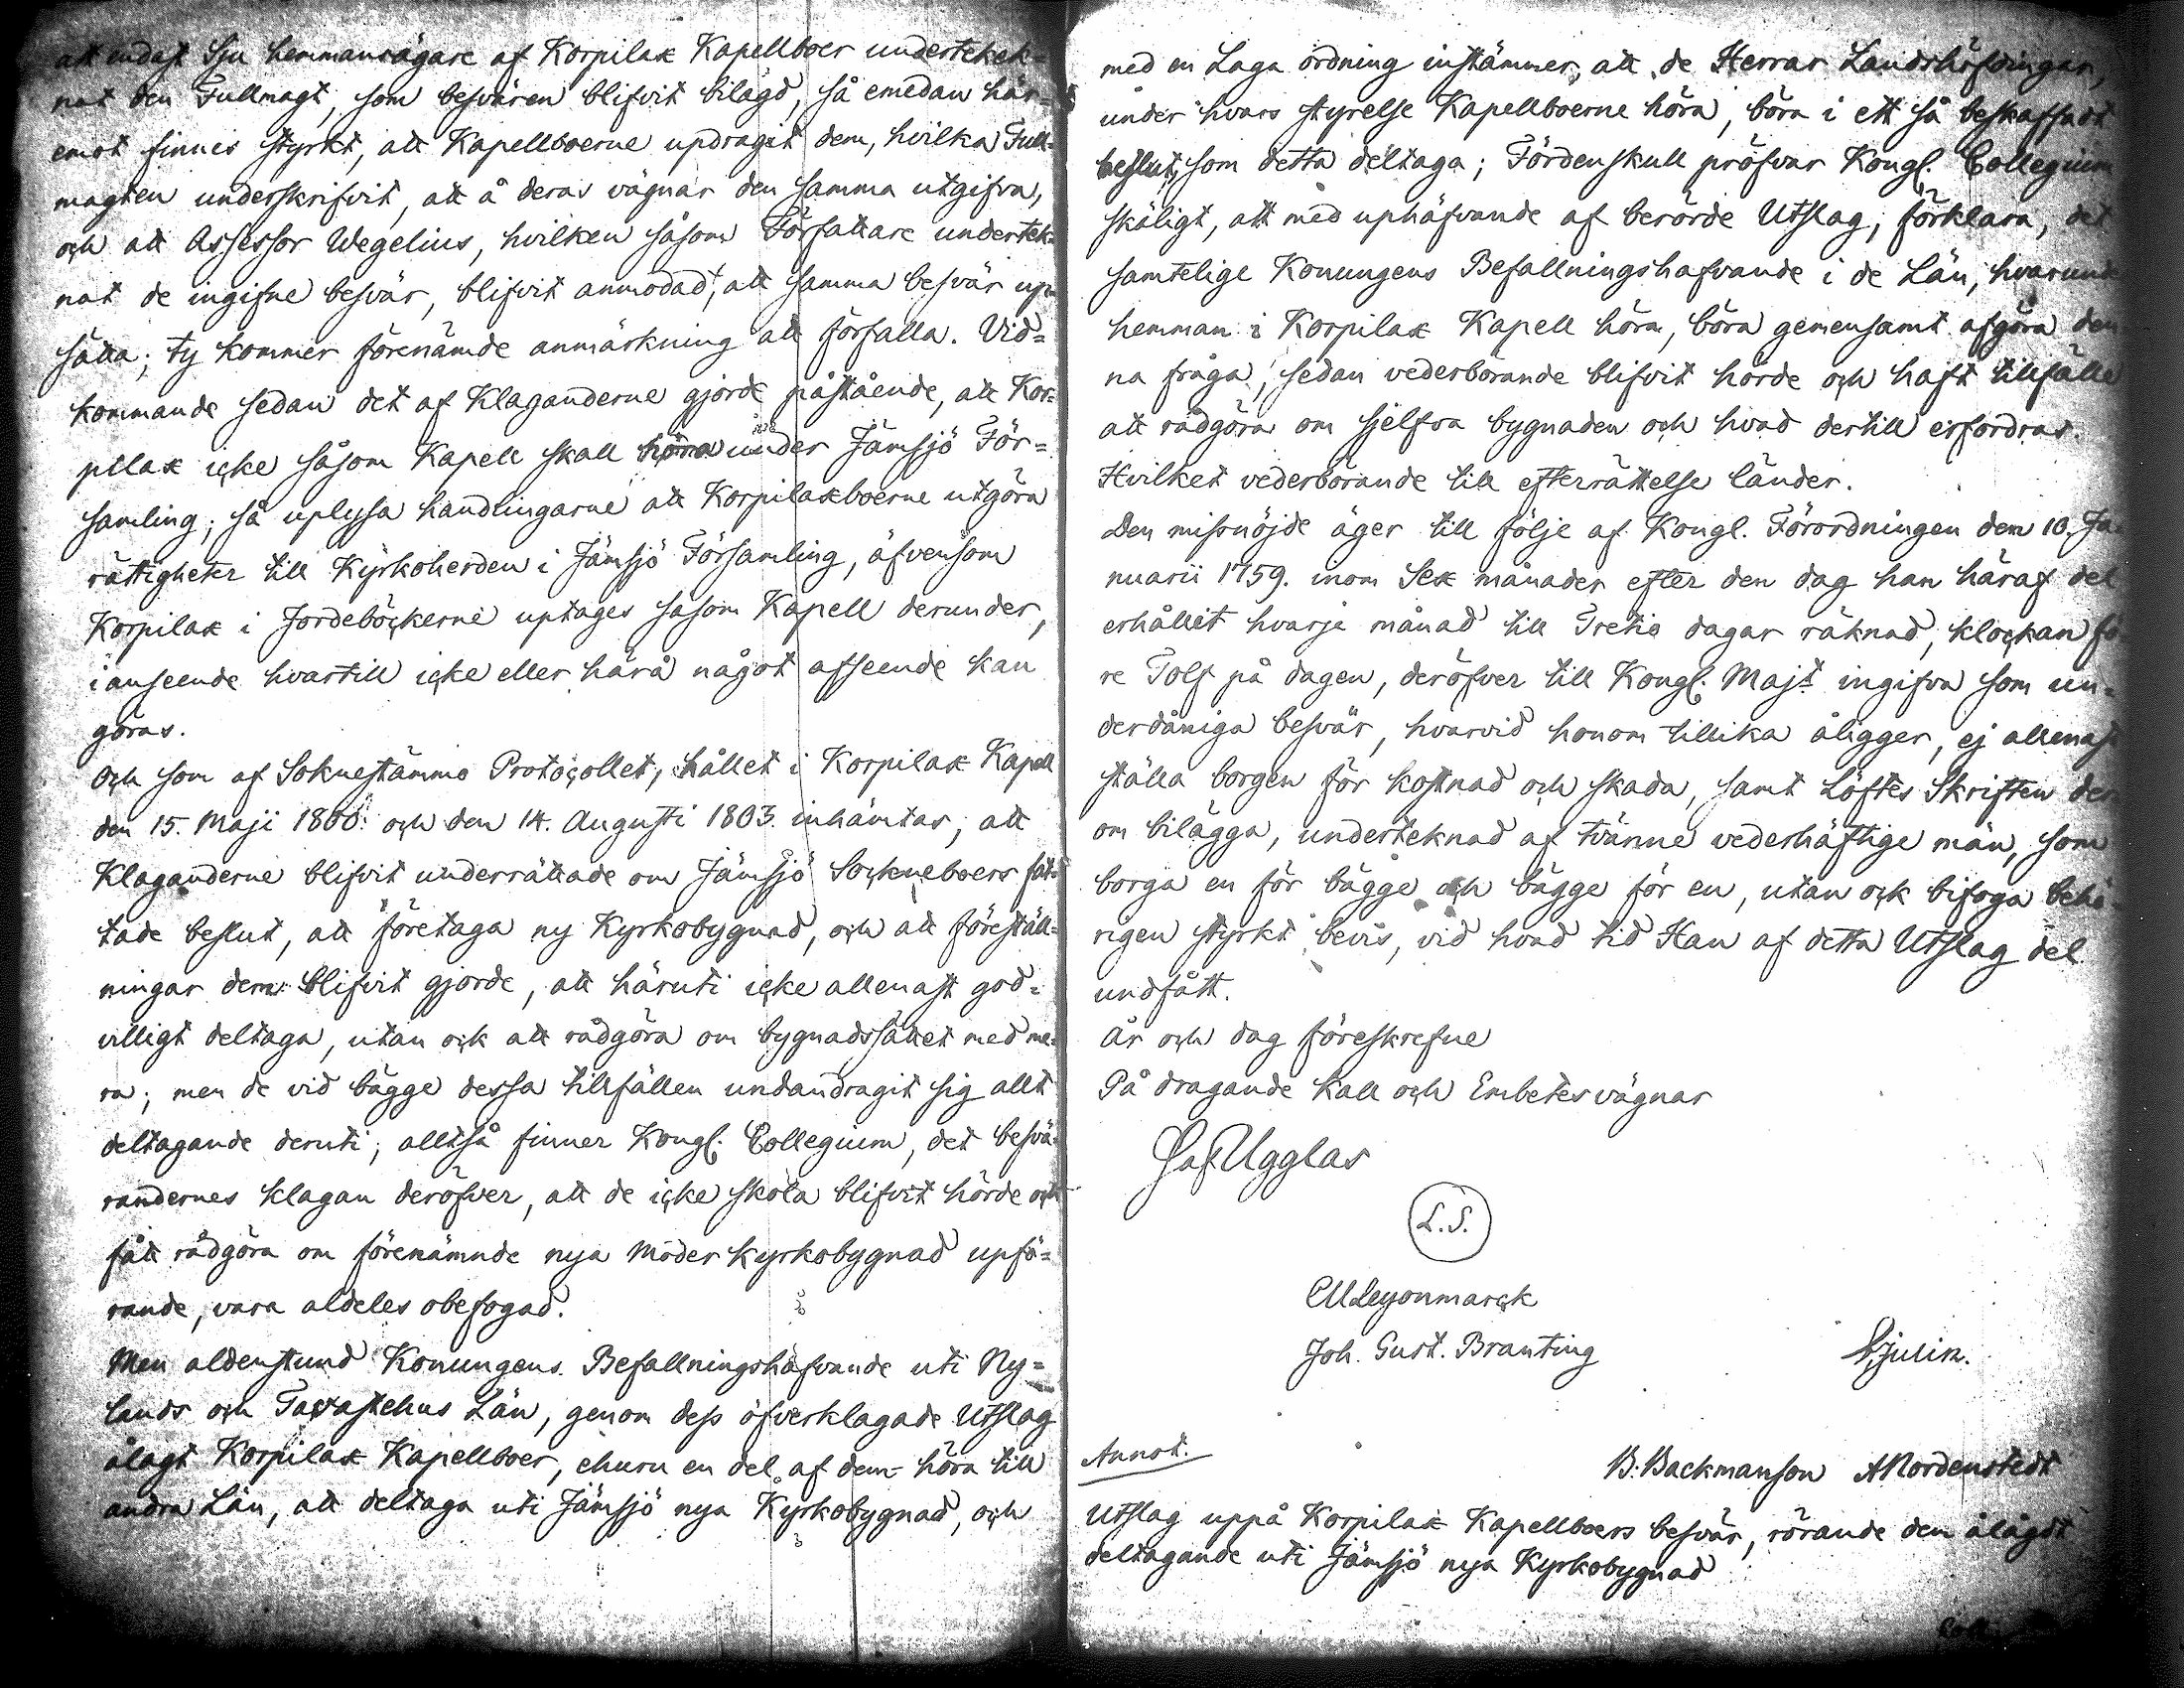 att endast Sju hemmansägare af Korpilax Kapellboer undertekek=
nat den Fullmagt, som besvären blifvit bilagd, så emedan här=
emot finnes styrkt, att Kapellboerne updragit dem, hvilka Full=
magten underskrifvit, att å deras vägnar den samma utgifva,
och att Assessor Wegelius, hvilken såsom Författare undertek=
nat de ingifne besvär, blifvit anmodad, att samma besvär up=
sätta; ty kommer förenämde anmärkning att förfalla. Vid=
kommande sedan det af Klaganderne gjorde påstående, att Kor=
pilax icke såsom Kapell skall höra under Jämsjö För=
samling, så uplysa handlingarne att Korpilaxboerne utgöra
rättigheter till Kyrkoherden i Jämsjö Församling, äfvensom
Korpilax i Jordeböckerne uptages såsom Kapell derunder,
i anseende hvartill icke eller härå något afseende kan
göras.
Och som af Soknestämmo Protocollet, hållet i Korpilax Kapell
den 15. Maji 1800. och den 14. Augusti 1803. inhämtas, att
Klaganderne blifvit underrättade om Jämsjö Sockneboers fat=
tade beslut, att företaga ny Kyrkobygnad, och att föreställ=
ningar dem blifvit gjorde, att häruti icke allenast god=
villigt deltaga, utan ock att rådgöra om bygnadssättet med me=
ra; men de vid bägge dessa tillfällen undandragit sig allt
deltagande deruti; alltså finner Kongl. Collegium, det besvä=
randernes klagan deröfver, att de icke skola blifvit hörde och
fått rådgöra om förenämnde nya Moderkyrkobygnad upfö=
rande, vara aldeles obefogad.
Men aldenstund Konungens Befallningshafvande uti Ny=
lands och Tavastehus Län, genom dess öfverklagade Utslag
ålagt Korpilax Kapellboer, ehuru en del af dem höra till
andra Län, att deltaga uti Jämsjö nya Kyrkobygnad, och
med en Laga ordning instämmer, att de Herrar Landshöfdingar,
under hvars styrelse Kapellboerne höra, böra i ett så beskaffadt
beslut, som detta deltaga; Fördenskull pröfvar Kongl. Collegium
skäligt, att med uphäfvande af berörde Utslag, förklara, det
samtelige Konungens Befallningshafvande i de Län, hvarunde
hemman i Korpilax Kapell höra, böra gemensamt afgöra den
na fråga, sedan vederbörande blifvit hörde och haft tillfälle
att rådgöra om sjelfva bygnaden och hvad dertill erfordras.
Hvilket vederbörande till efterrättelse länder.
Den missnöjde äger till följe af Kongl. Förordningen dem 10. Ja=
nuarii 1759. inom Sex månader efter den dag han häraf del
erhållit hvarje månad till Tretio dagar räknad, klockan fö
re Tolf på dagen, deröfver till Kongl. Majt ingifva som un=
derdåniga besvär, hvarvid honom tillika åligger, ej allenast
ställa borgen för kostnad och skada, samt Löftes Skriften der
om bilägga, underteknad af tvänne vederhäftige män, som
borga en för bägge och bägge för en, utan ock bifoga behö=
rigen styrkt bevis, vid hvad tid Han af detta Utslag del
undfått.
År och dag föreskrefne
På dragande Kall och Embetesvägnar
S af Ugglas
L.S.
CM Leyonmarck
Joh. Gust. Branting
Sjulin.
Annot.
B. Backmanson ANordenstedt
Utslag uppå Korpilax Kapellboers besvär, rörande dem ålagdt
deltagande uti Jämsjö nya Kyrkobygnad